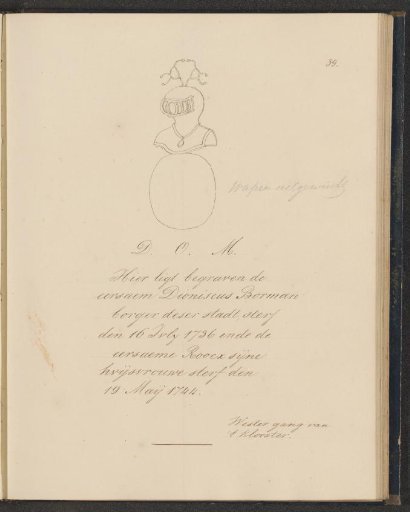 39.
Wapen uitgewischt
D. O. M.
Hier legt begraven de
eersaem Dionisius Borman
borger deser stadt sterf
den 16 July 1736 ende de
eersaeme Roocx sijne
huijsvrouwe sterf den
19 Maij 1744.
Wester gang van
't klooster.